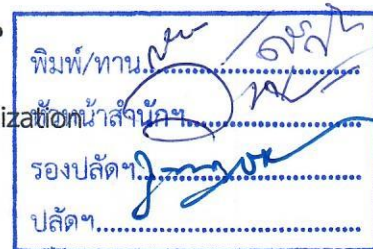 พิมพ์/ทาน
ization
หัวหน้าสำนักฯ
รองปลัดฯ
ปลัดฯ